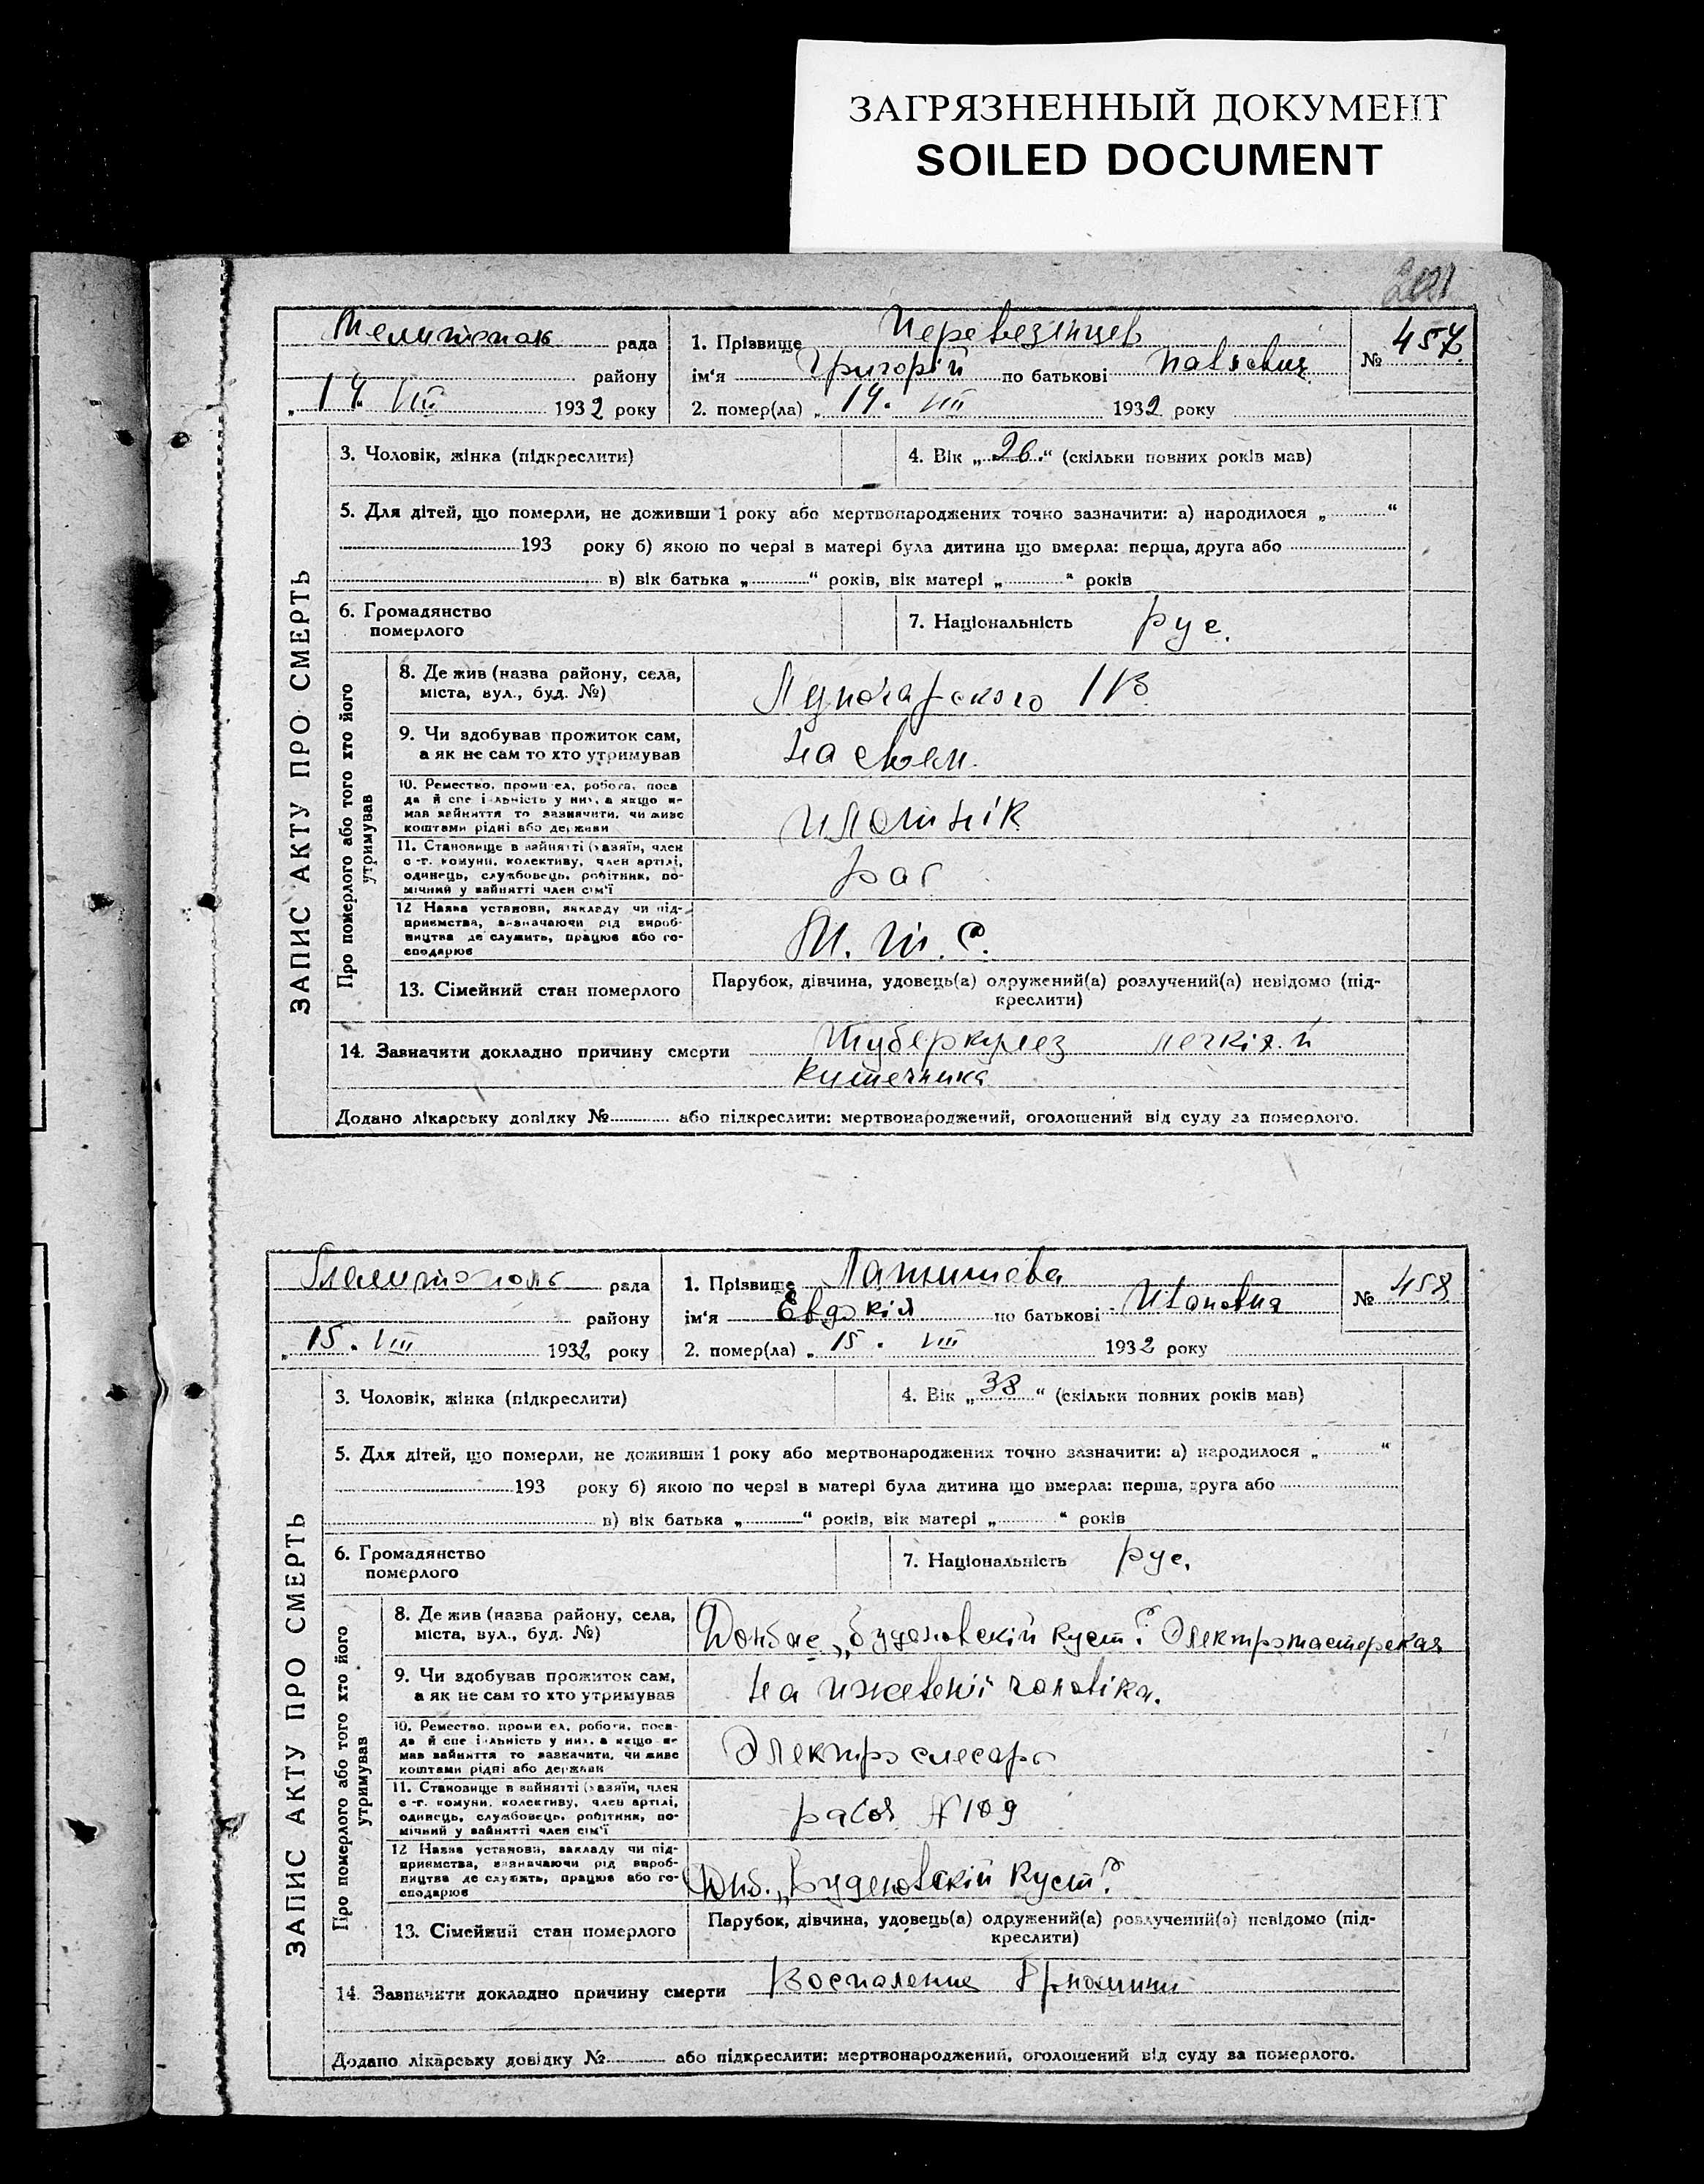 ЗАГРЯЗНЕННЫЙ ДОКУМЕНТ
SOILED DOCUMENT
201
рада
району
"14" VIII 1932 року
1. Прізвище Перевезянцев
ім'я Григорій по батькові Павлович
2. помер(ла) „ 14. VIII 1932 року
№ 457
ЗАПИС АКТУ ПРО СМЕРТЬ
3. Чоловік, жінка (підкреслити)
4. Вік „ 26." (скільки повних років мав)
5. Для дітей, що померли, не доживши 1 року або мертвонароджених точно зазначити: а) народилося „ "
193 року б) якою по черзі в матері була дитина що вмерла: перша, друга або
в) вік батька „ " років, вік матері „ " років
6. Громадянство
померлого
7. Національність рус.
Про померлого або того хто його
утримував
8. Де жив (назва району, села,
міста, вул., буд. №)
Луначарского 113
9. Чи здобував прожиток сам,
а як не сам то хто утримував
на своем.
10. Ремество, проми ел, робота, поса
да й спе і льність у них, а якщо не
мав зайняття то зазначити, чи живе
коштами рідні або держави
плотнік
11. Становище в зайнятті (хазяїн, член
с-г. комуни, колективу, член артілі,
одинець, службовець, робітник, по-
мічний у зайнятті член сім'ї
раб
12 Назва установи, закладу чи під-
приємства, зазначаючи рід вироб-
ництва де служить, працює або го-
сподарює
М. Т. С.
13. Сімейний стан померлого
Парубок, дівчина, удовець(а) одружений(а) розлучений(а) невідомо (під-
креслити)
14. Зазначити докладно причину смерти Туберкулез легкіх й
кишечника
Додано лікарську довідку № або підкреслити: мертвонароджений, оголошений від суду за померлого.
Мелитополь рада
району
„ 15. VIII 1932 року
1. Прізвище Латишева
ім'я Евдокія по батькові Ивановна
2. помер(ла) „ 15. VIII 1932 року
№ 458
ЗАПИС АКТУ ПРО СМЕРТЬ
3. Чоловік, жінка (підкреслити)
4. Вік „ 38 " (скільки повних років мав)
5. Для дітей, що померли, не доживши 1 року або мертвонароджених точно зазначити: а) народилося „ "
193 року б) якою по черзі в матері була дитина що вмерла: перша, друга або
в) вік батька „ " років, вік матері „ " років
6. Громадянство
померлого
7. Національність рус.
Про померлого або того хто його
утримував
8. Де жив (назва району, села,
міста, вул., буд. №)
Донбас „Буденовскій куст" Электромастерская
9. Чи здобував прожиток сам,
а як не сам то хто утримував
на иждевенії чоловіка.
10. Ремество, проми ел, робота, поса-
да й спе і льність у них, а якщо не
мав зайняття то зазначити, чи живе
коштами рідні або держави
Электрослесарь
11. Становище в зайнятті (хазяїн, член
с-г. комуни, колективу, член артілі,
одинець, службовець, робітник, по-
мічний у зайнятті член сім'ї
рабоч № 109
12 Назва установи, закладу чи під-
приємства, зазначаючи рід вироб-
ництва де служить, працює або го-
сподарює
„Буденовскій Куст"
13. Сімейний стан померлого
Парубок, дівчина, удовець(а) одружений(а) розлучений(а) невідомо (під-
креслити)
14. Зазначити докладно причину смерти Воспаление брюшини
Додано лікарську довідку № або підкреслити: мертвонароджений, оголошений від суду за померлого.